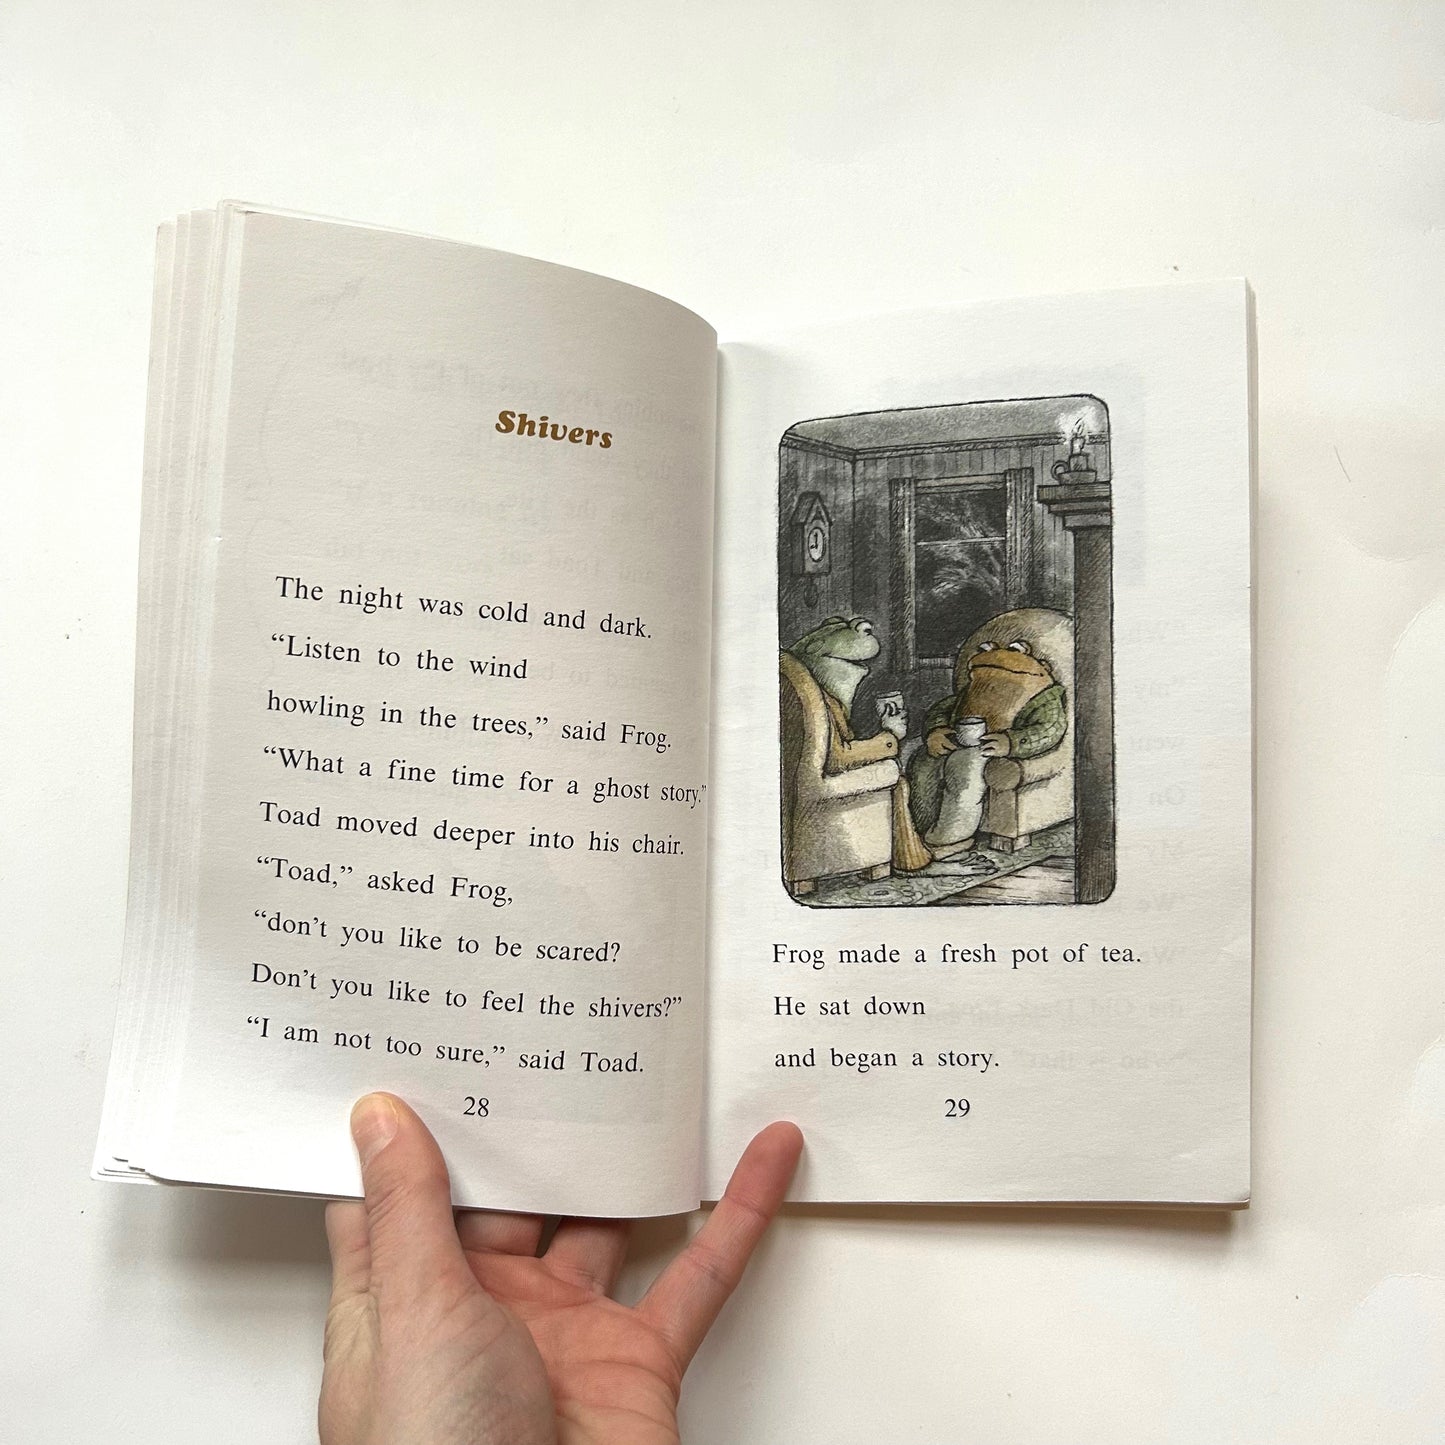 Shivers
The night was cold and dark.
“Listen to the wind
howling in the trees,” said Frog.
“What a fine time for a ghost story.”
Toad moved deeper into his chair.
“Toad,” asked Frog,
“don’t you like to be scared?
Don’t you like to feel the shivers?”
“I am not too sure,” said Toad.
28
Frog made a fresh pot of tea.
He sat down
and began a story.
29